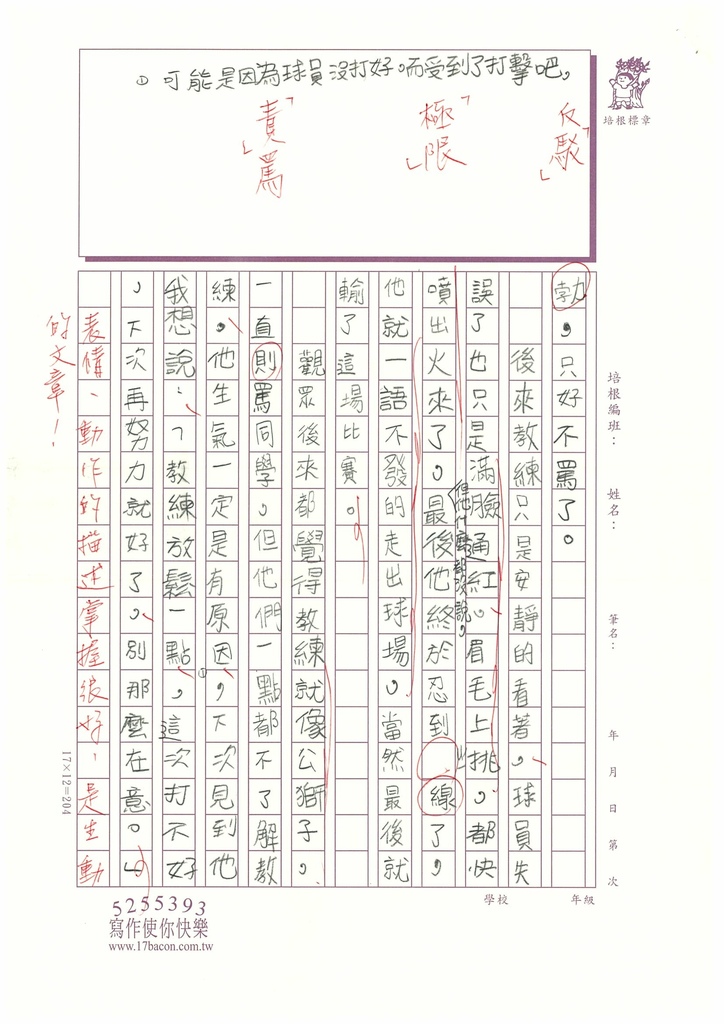 ①可能是因為球員沒打好。而受到了打擊吧。
反駁
極限
責罵
培根標章
培根編班：
姓名：
筆名：
年 月 日 第 次
勃，只好不罵了。
後來教練只是安靜的看著。球員失
誤了也只是滿臉通紅。眉毛上挑。都快
噴出火來了。最後他終於忍到線了，
但他什麼都沒說。
他就一語不發的走出球場。當然最後就
輸了這場比賽。
觀眾後來都覺得教練就像公獅子。
一直則罵同學。但他們一點都不了解教
練。他生氣一定是有原因①，下次見到他
我想說：「教練放鬆一點。這次打不好
，下次再努力就好了。別那麼在意。」
表情、動作的描述掌握很好，是生動
的文章！
17×12=204
學校
年級
5255393
寫作使你快樂
www.17bacon.com.tw